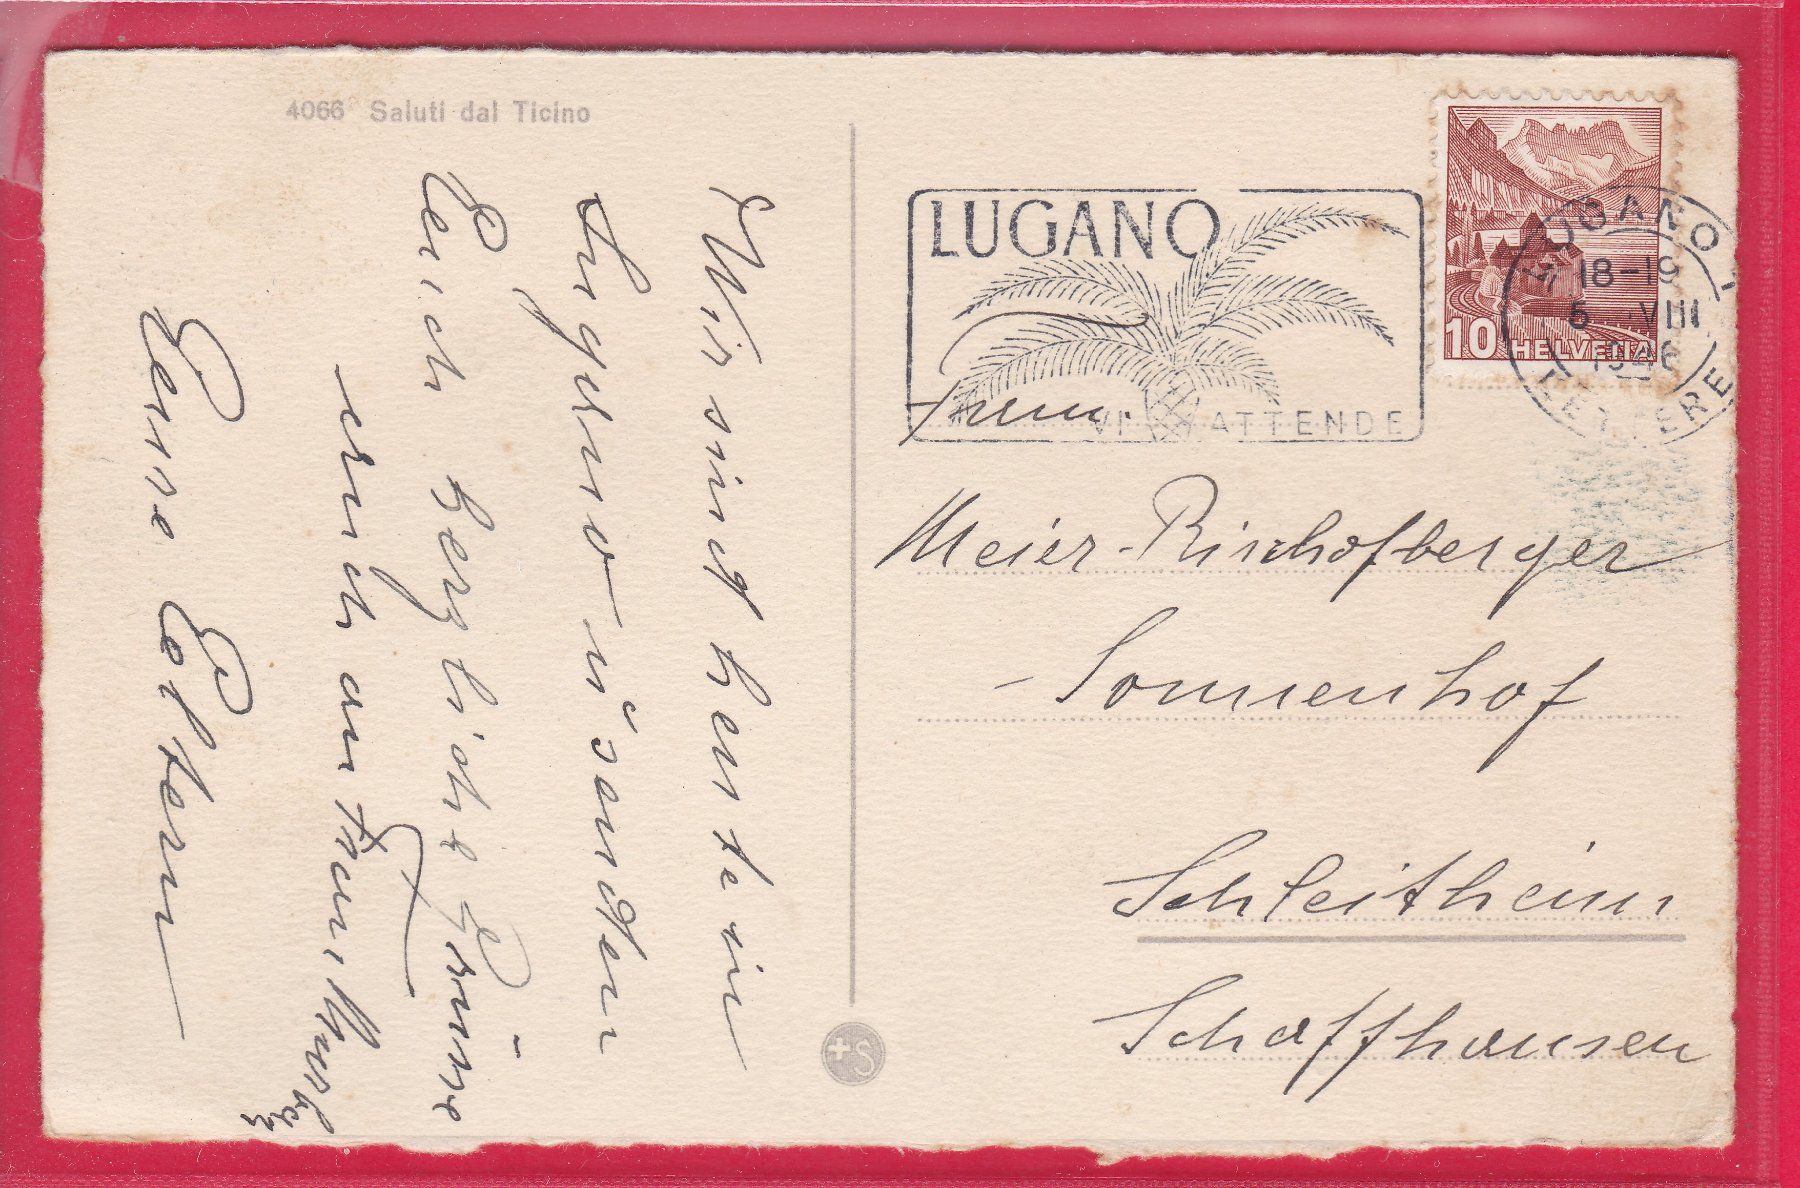 4066 Saluti dal Ticino
Wir sind heute in
Lugano u. senden
Euch herzliche Grüsse
auch an Fam.
Eure Eltern
LUGANO
VI ATTENDE
10 HELVETIA
LUGANO 1
18-19
5 VIII
1946
LETTERE
Fam.
Meier-Bischofberger
- Sonnenhof
Schleitheim
Schaffhausen
+S